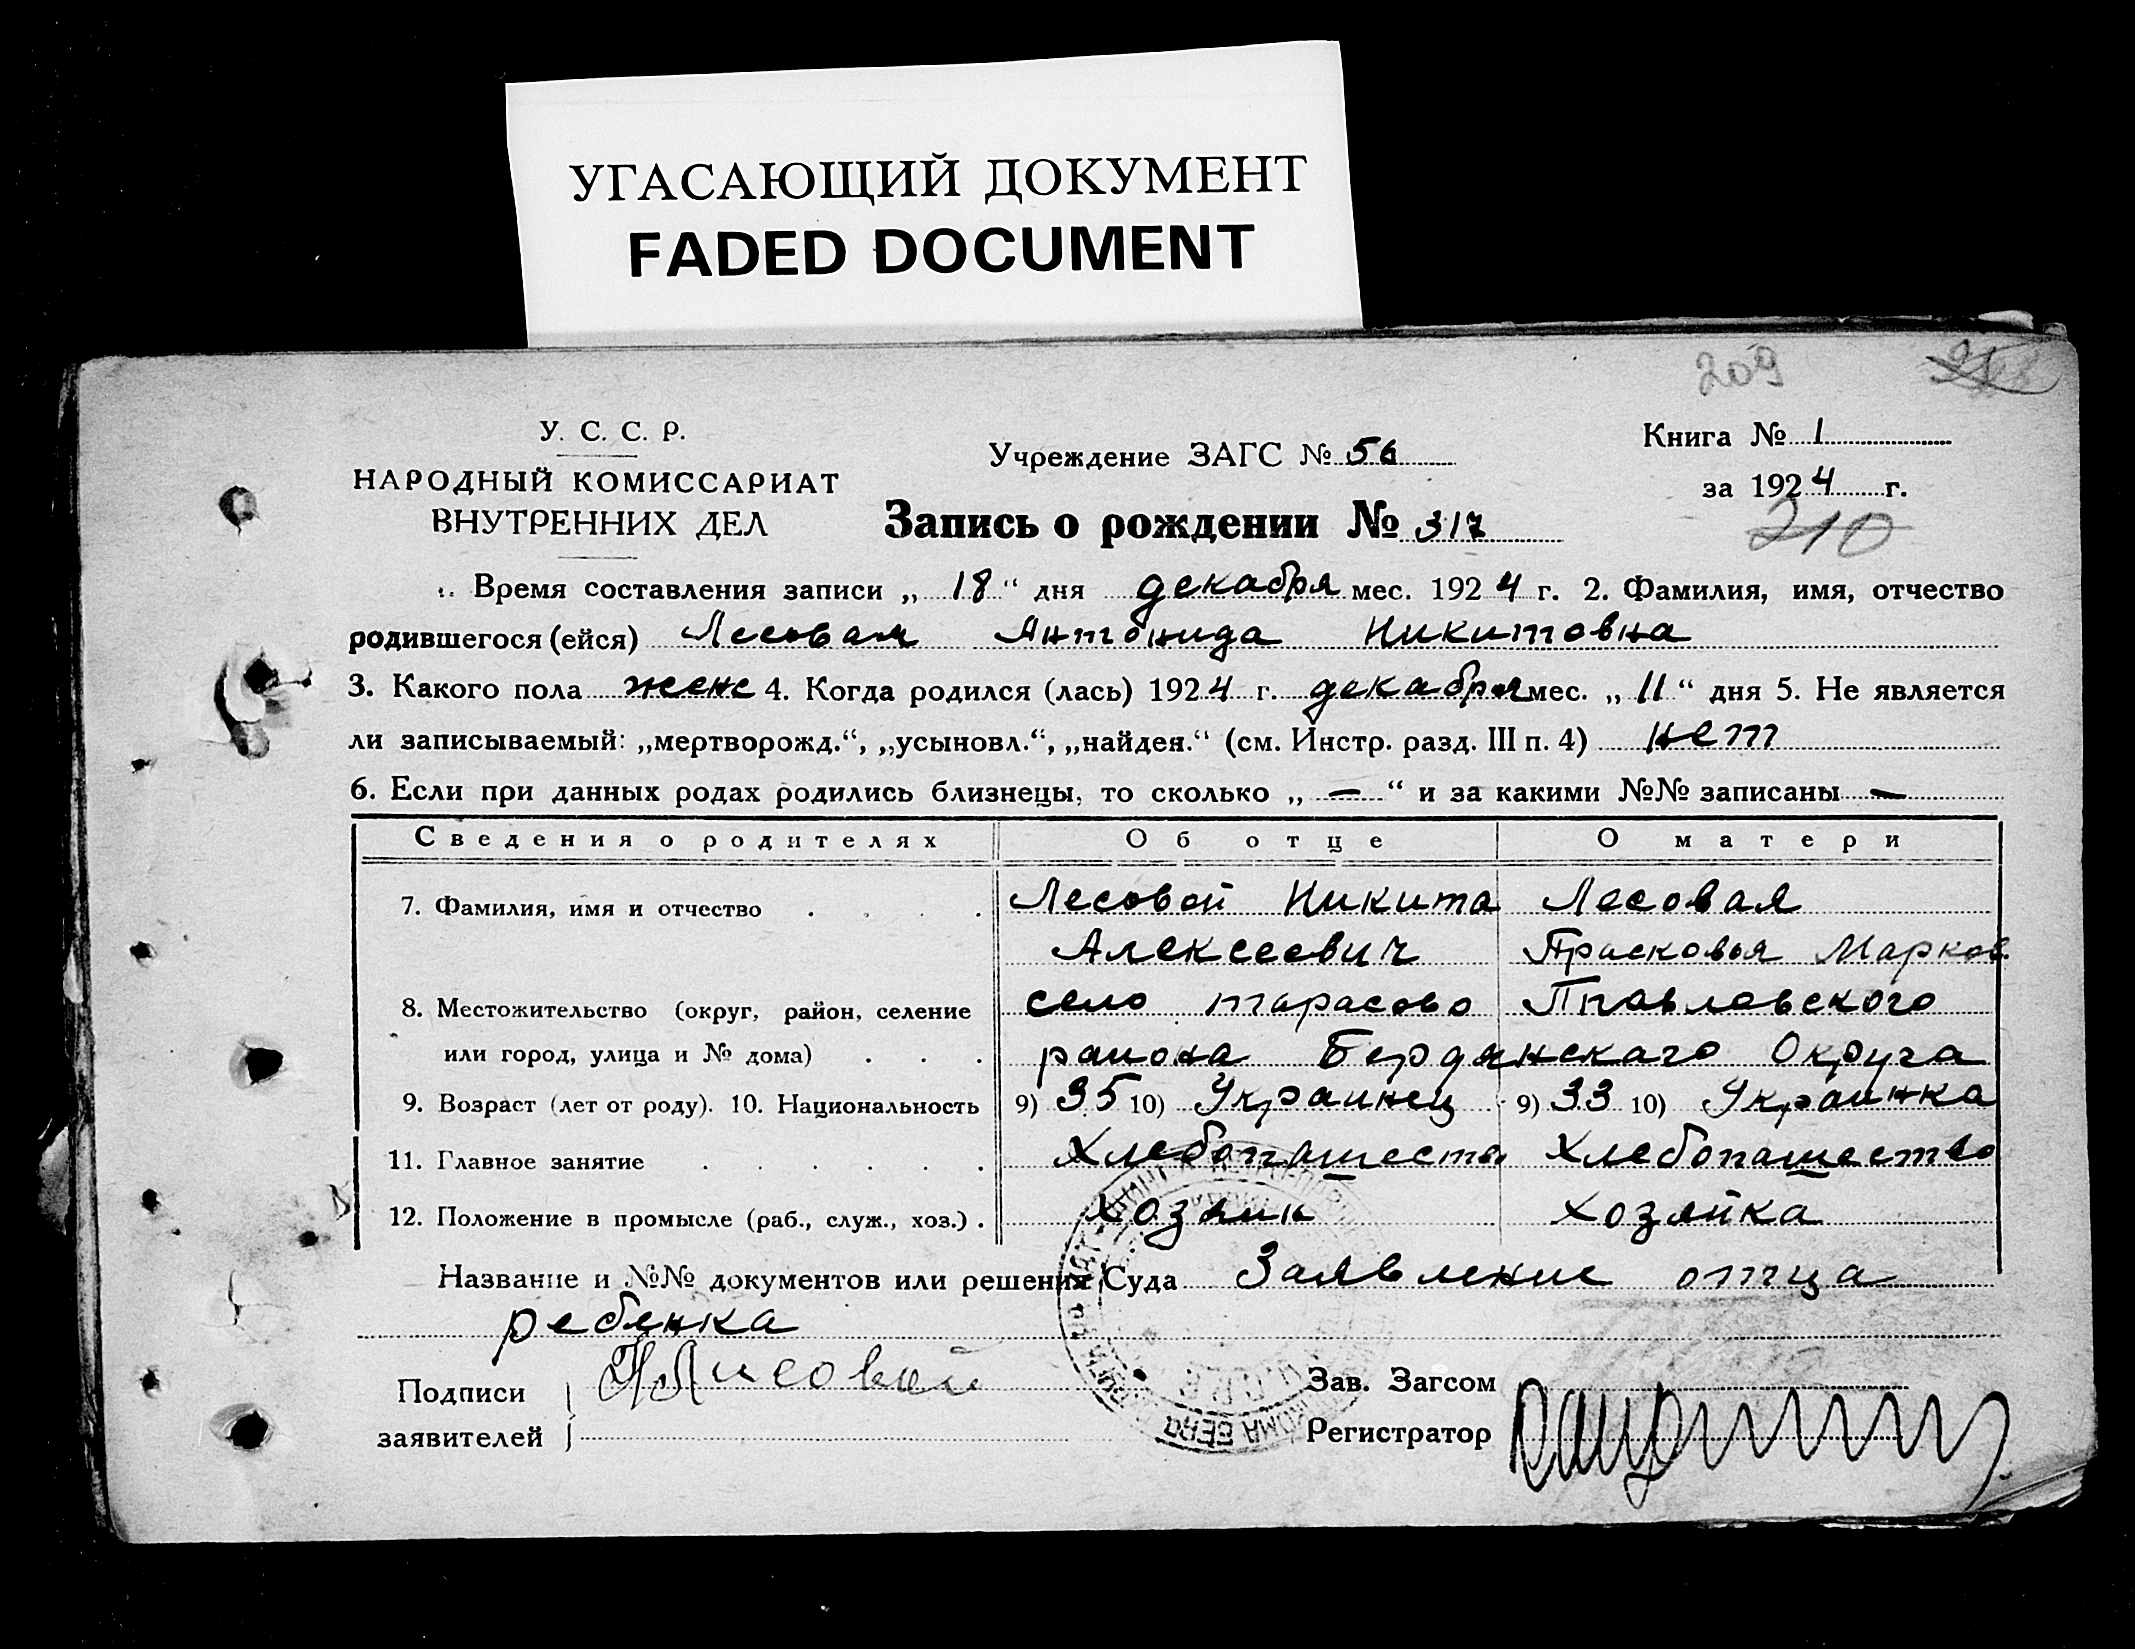 УГАСАЮЩИЙ ДОКУМЕНТ
FADED DOCUMENT
209
У. С. С. Р.
НАРОДНЫЙ КОМИССАРИАТ
ВНУТРЕННИХ ДЕЛ
Учреждение ЗАГС № 56
Книга № 1
за 1924 г.
210
Запись о рождении № 317
Время составления записи „ 18 “ дня декабря мес. 1924 г. 2. Фамилия, имя, отчество
родившегося (ейся) Лесовая Антонида Никитовна
3. Какого пола женс 4. Когда родился (лась) 1924 г. декабря мес. „ 11 “ дня 5. Не является
ли записываемый: „мертворожд.“, „усыновл.“, „найден.“ (см. Инстр. разд. III п. 4) нет
6. Если при данных родах родились близнецы, то сколько „ — “ и за какими №№ записаны —
Сведения о родителях Об отце О матери
7. Фамилия, имя и отчество . . . . Лесовой Никита Лесовая
Алексеевич Прасковья Марков.
8. Местожительство (округ, район, селение село тарасово Павловского
или город, улица и № дома) . . . района Бердянскаго Округа
9. Возраст (лет от роду). 10. Национальность 9) 35 10) Украинец 9) 33 10) Украинка
11. Главное занятие . . . . . . Хлебопашество Хлебопашество
12. Положение в промысле (раб., служ., хоз.) . Хозяин Хозяйка
Название и №№ документов или решения Суда Заявление отца
ребенка
Подписи Н Лисовой
заявителей
Зав. Загсом
Регистратор